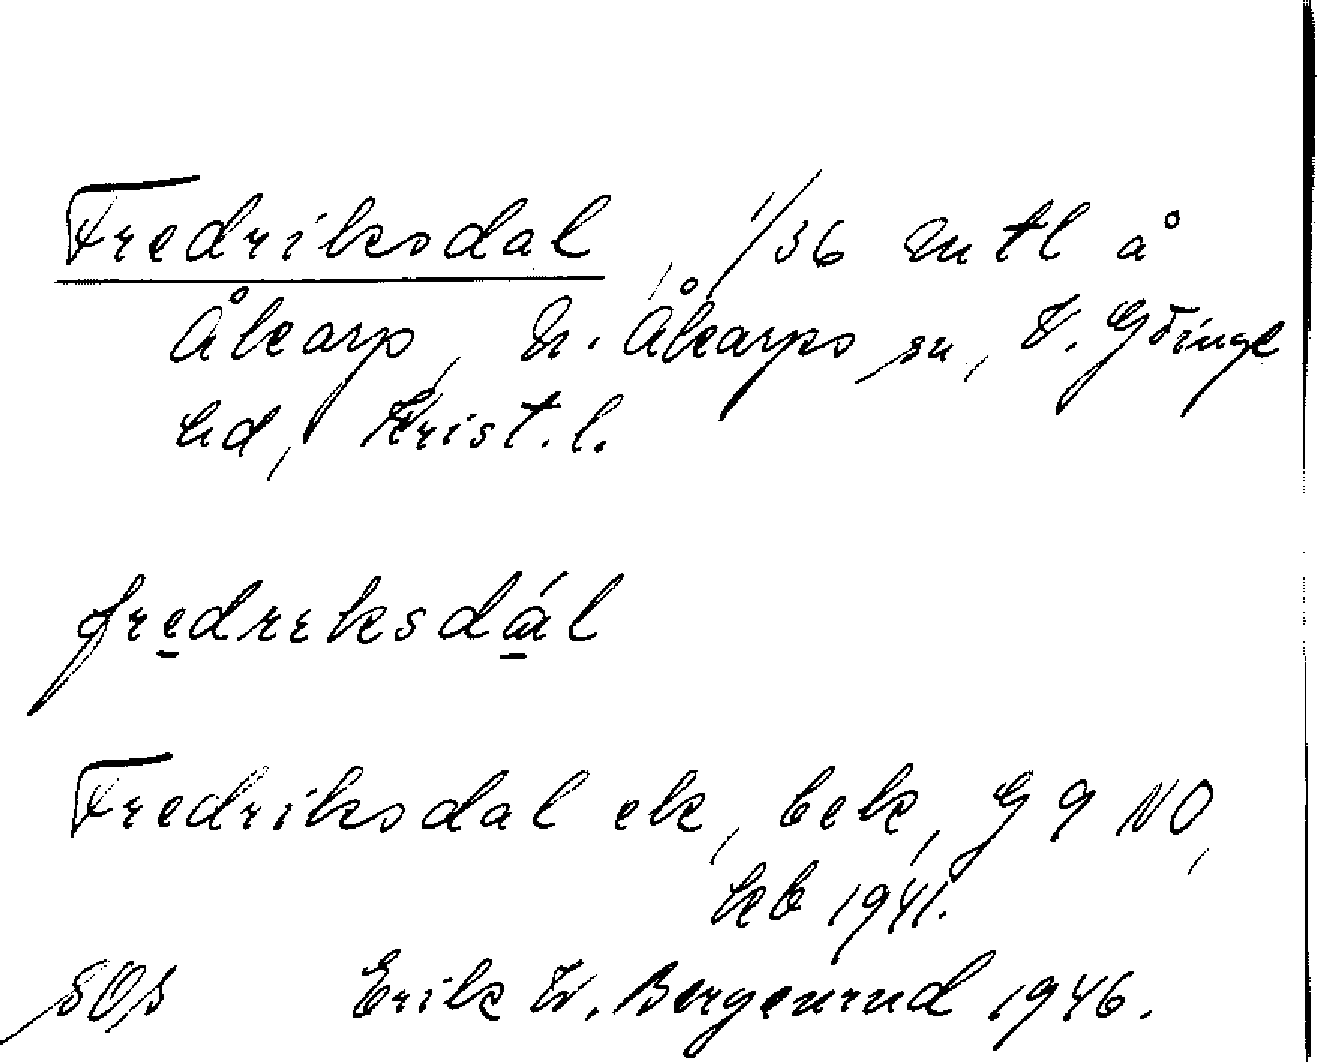 Fredriksdal, 1/36 mtl å
Åkarp, N. Åkarps sn, V. Göinge
hd, Krist. l.
fredreksdál
Fredriksdal ek, bek, G 9 NO,
hb 1941.
SOs Erik W. Bergenrud 1946.